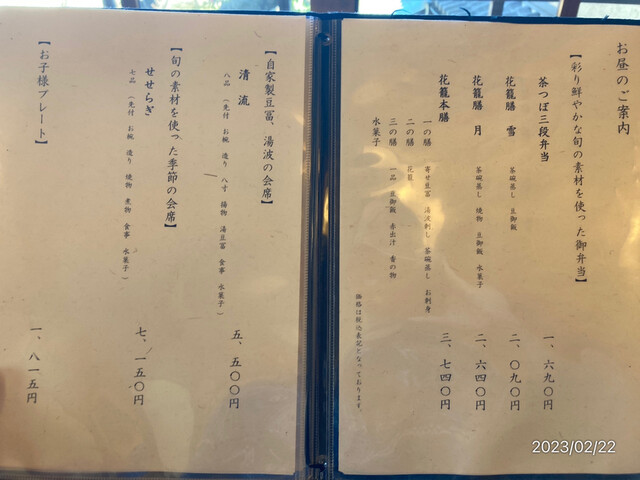 お昼のご案内
【彩り鮮やかな旬の素材を使った御弁当】
茶つぼ三段弁当 一、六九〇円
花籠膳 雪 茶碗蒸し 豆御飯 二、〇九〇円
花籠膳 月 茶碗蒸し 焼物 豆御飯 水菓子 二、六四〇円
花籠本膳 三、七四〇円
一の膳 寄せ豆冨 湯波刺し 茶碗蒸し お刺身
二の膳 花籠
三の膳 一品 豆御飯 赤出汁 香の物
水菓子
価格は税込表記となっております。
【自家製豆冨、湯波の会席】
清流 五、五〇〇円
八品 (先付 お椀 造り 八寸 揚物 湯豆冨 食事 水菓子)
【旬の素材を使った季節の会席】
せせらぎ 七、一五〇円
七品 (先付 お椀 造り 焼物 煮物 食事 水菓子)
【お子様プレート】 一、八一五円
2023/02/22